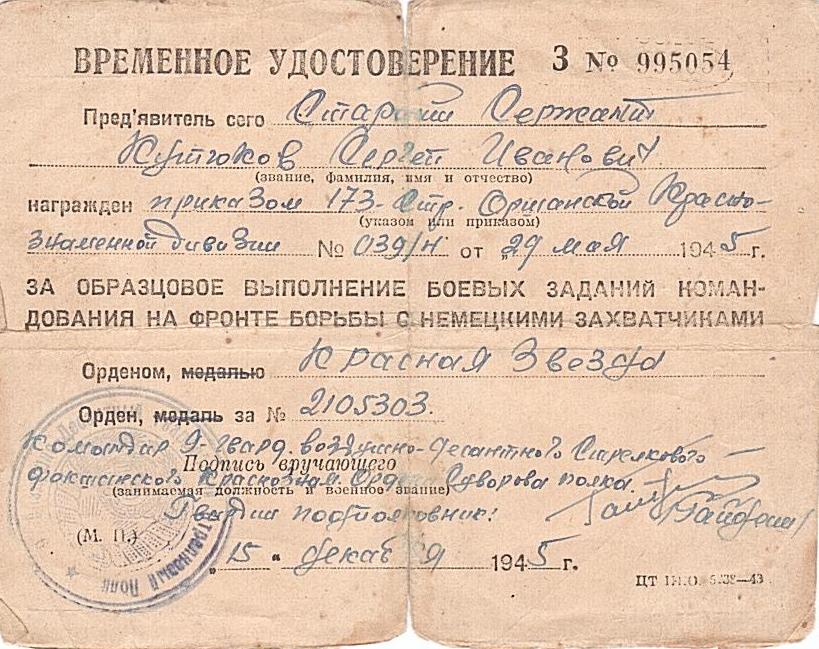 ВРЕМЕННОЕ УДОСТОВЕРЕНИЕ З № 995054
Пред'явитель сего Старший Сержант
Кутюков Сергей Иванович
(звание, фамилия, имя и отчество)
награжден приказом 173-Стр. Оршанской Красно-
(указом или приказом)
знаменной дивизии № 039/н от „29 мая 1945г.
ЗА ОБРАЗЦОВОЕ ВЫПОЛНЕНИЕ БОЕВЫХ ЗАДАНИЙ КОМАН-
ДОВАНИЯ НА ФРОНТЕ БОРЬБЫ С НЕМЕЦКИМИ ЗАХВАТЧИКАМИ
Орденом, медалью Красная Звезда
Орден, медаль за № 2105303.
Командир 9-гвард. воздушно-десантного Стрелкового
Подпись вручающего
Краснознам. Ордена Суворова полка
(занимаемая должность и военное звание)
Гвардии подполковник:
(М. П.)
„15“ декабря 1945г.
Стрелковый Полк